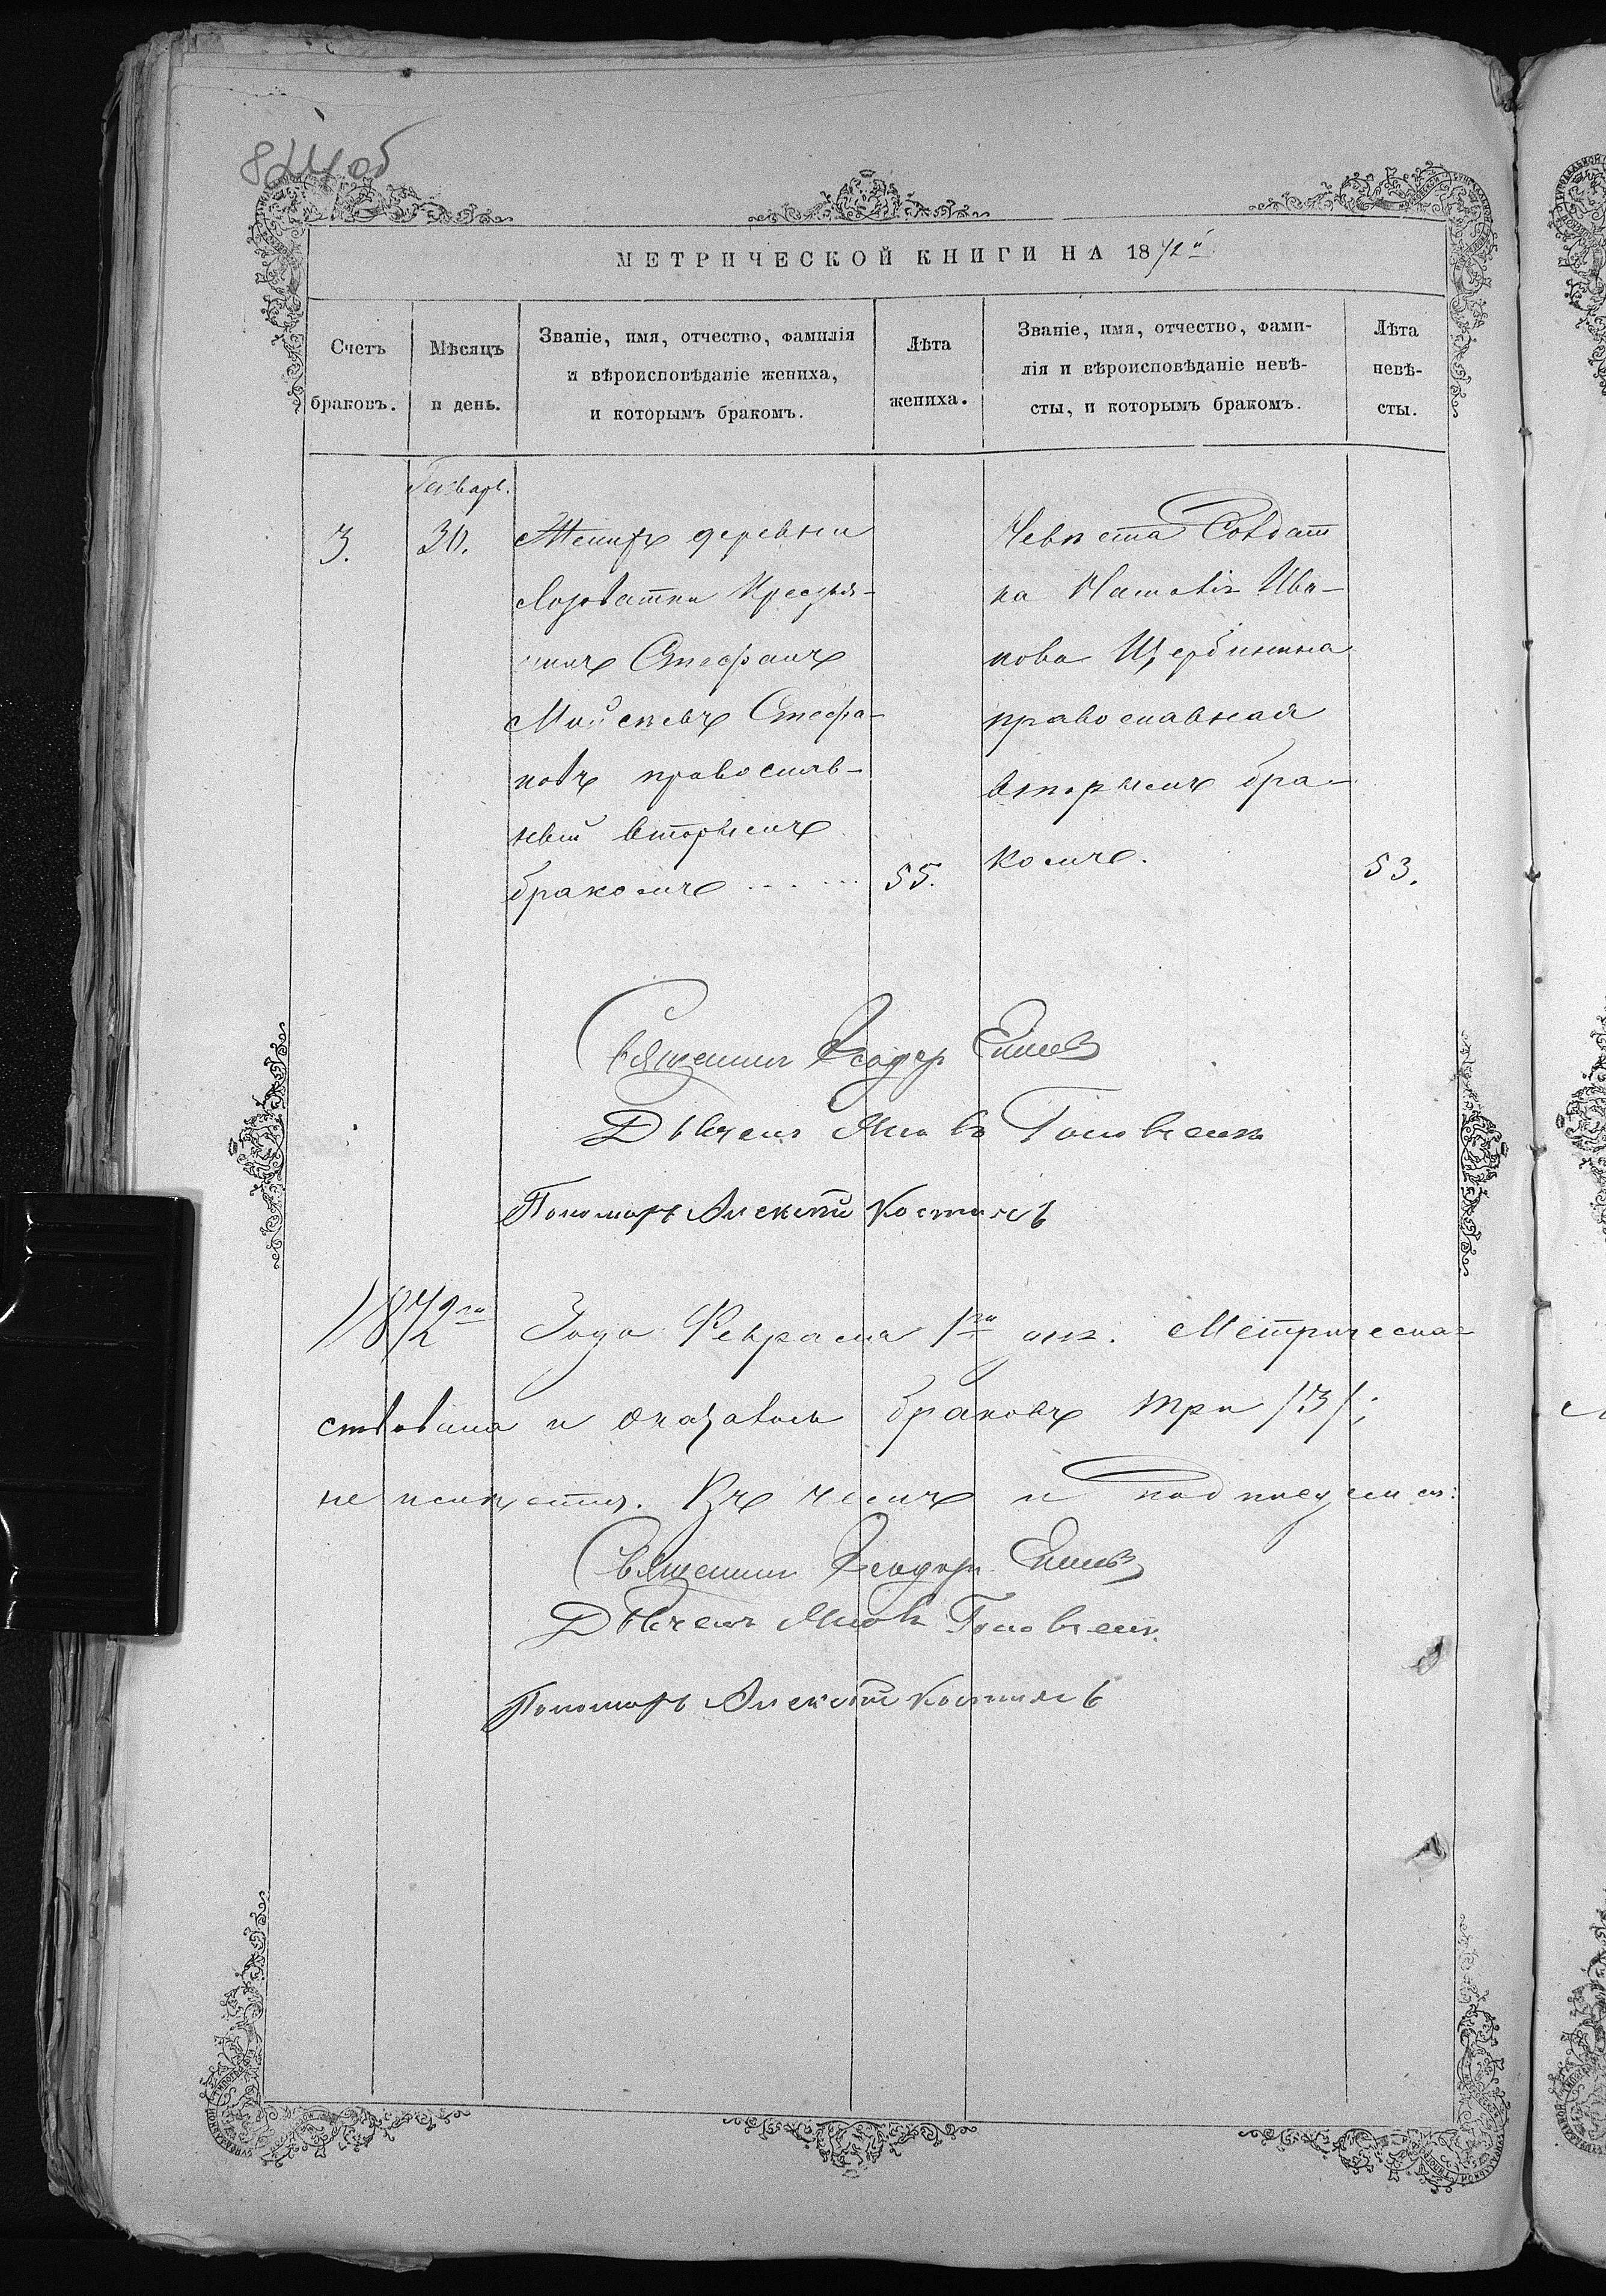 824 об
МЕТРИЧЕСКОЙ КНИГИ НА 1872й
Счетъ браковъ.
Мѣсяцъ и день.
Званіе, имя, отчество, фамилія
и вѣроисповѣданіе жениха,
и которымъ бракомъ.
Лѣта
жениха.
Званіе, имя, отчество, фами-
лія и вѣроисповѣданіе невѣ-
сты, и которымъ бракомъ.
Лѣта
невѣ-
сты.
Генварь.
3.
30.
Женихъ деревни
Лозоватки Крестья-
нинъ Стефанъ
Мойсеевъ Стефа-
новъ православ-
ный вторымъ
бракомъ
55.
Невѣста Солдат
ка Наталія Ива-
нова Щербинина
православная
вторымъ бра-
комъ.
53.
Священникъ Ѳеодоръ
Дьячекъ Яковъ
Пономарь Алексѣй
1872го Года Февраля 1го дня. Метрическа-
и оказалось браковъ три /3/;
Въ чемъ и подписуемся:
Священникъ Ѳеодоръ
Дьячекъ Яковъ
Пономарь Алексѣй